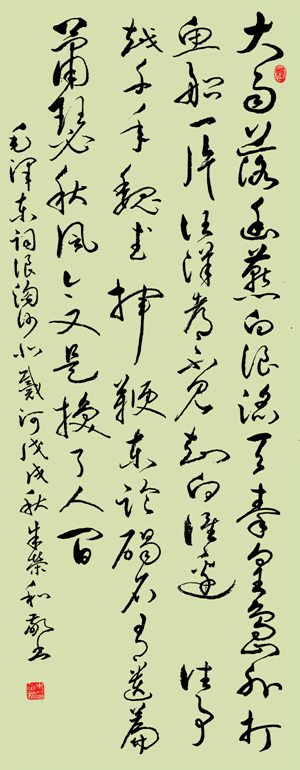 大雨落幽燕白浪滔天秦皇岛外打
鱼船一片汪洋都不见知向谁边 往事
越千年魏武挥鞭东临碣石有遗篇
萧瑟秋风今又是换了人间
毛泽东词浪淘沙北戴河戊戌秋朱荣和敬书